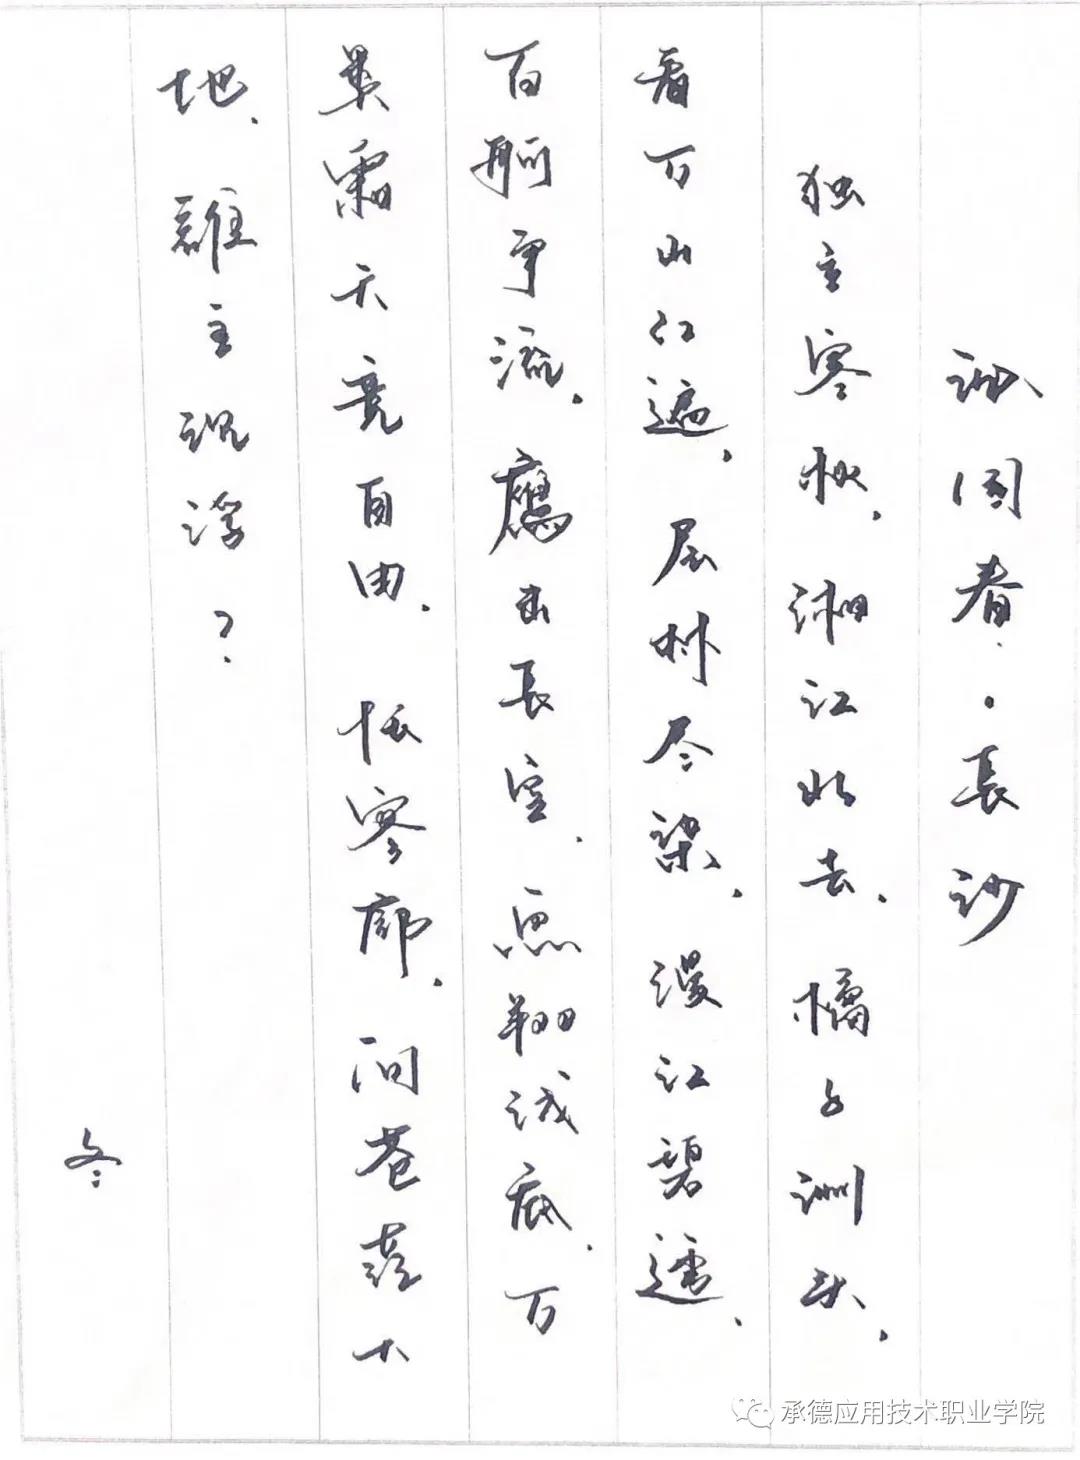 沁园春·長沙
独立寒秋，湘江北去，橘子洲头，
看万山红遍，层林尽染，漫江碧透，
百舸争流，鷹击長空，鱼翔浅底，万
类霜天竞自由，怅寥廓，问苍茫大
地，誰主沉浮？
冬
承德应用技术职业学院